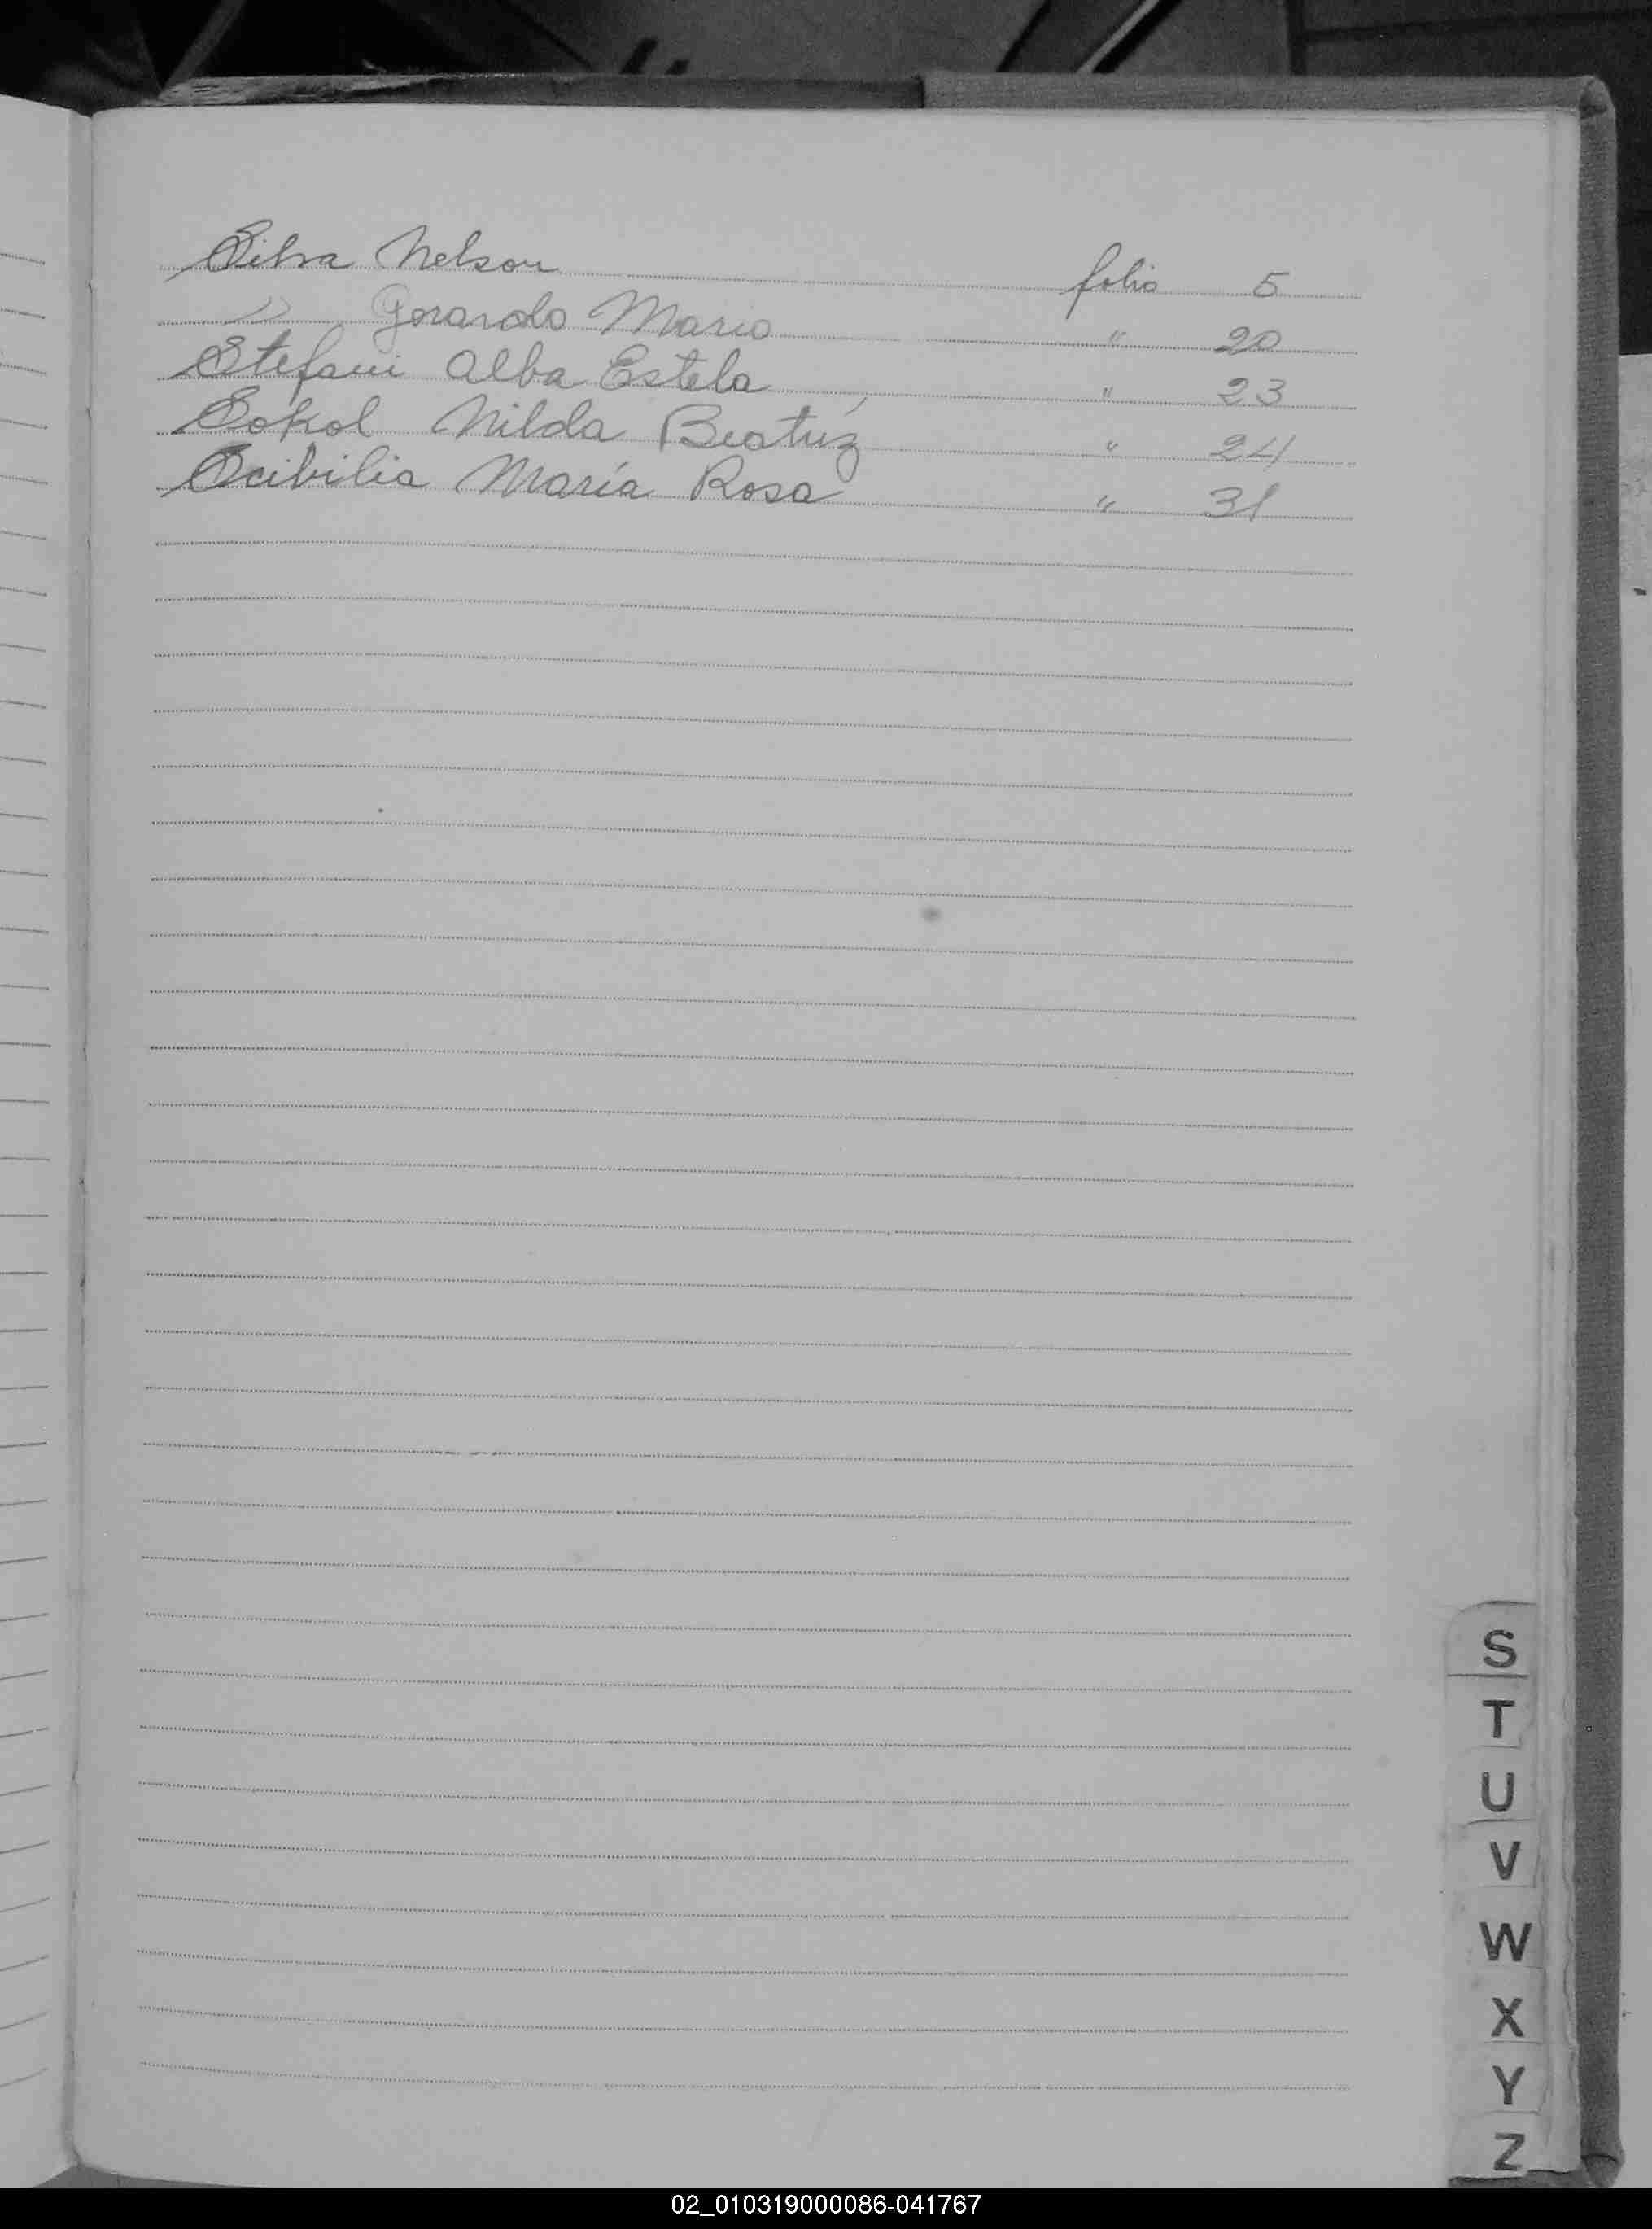 Silva Nelson folio 5
" Gerardo Mario " 20
Stefani Alba Estela " 23
Sokol Nilda Beatríz " 24
Scibilia María Rosa " 31
S
T
U
V
W
X
Y
Z
02_010319000086-041767